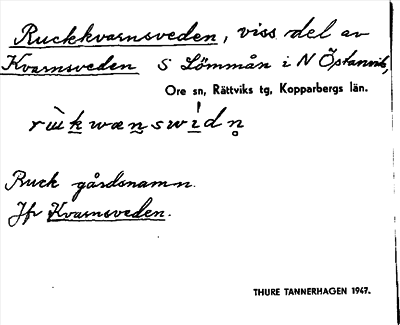 Ruckkvarnsveden, viss del av
Kvarnsveden S Lömmån i N Östanvik,
Ore sn, Rättviks tg, Kopparbergs län.
Ruck gårdsnamn.
Jfr Kvarnsveden.
THURE TANNERHAGEN 1947.